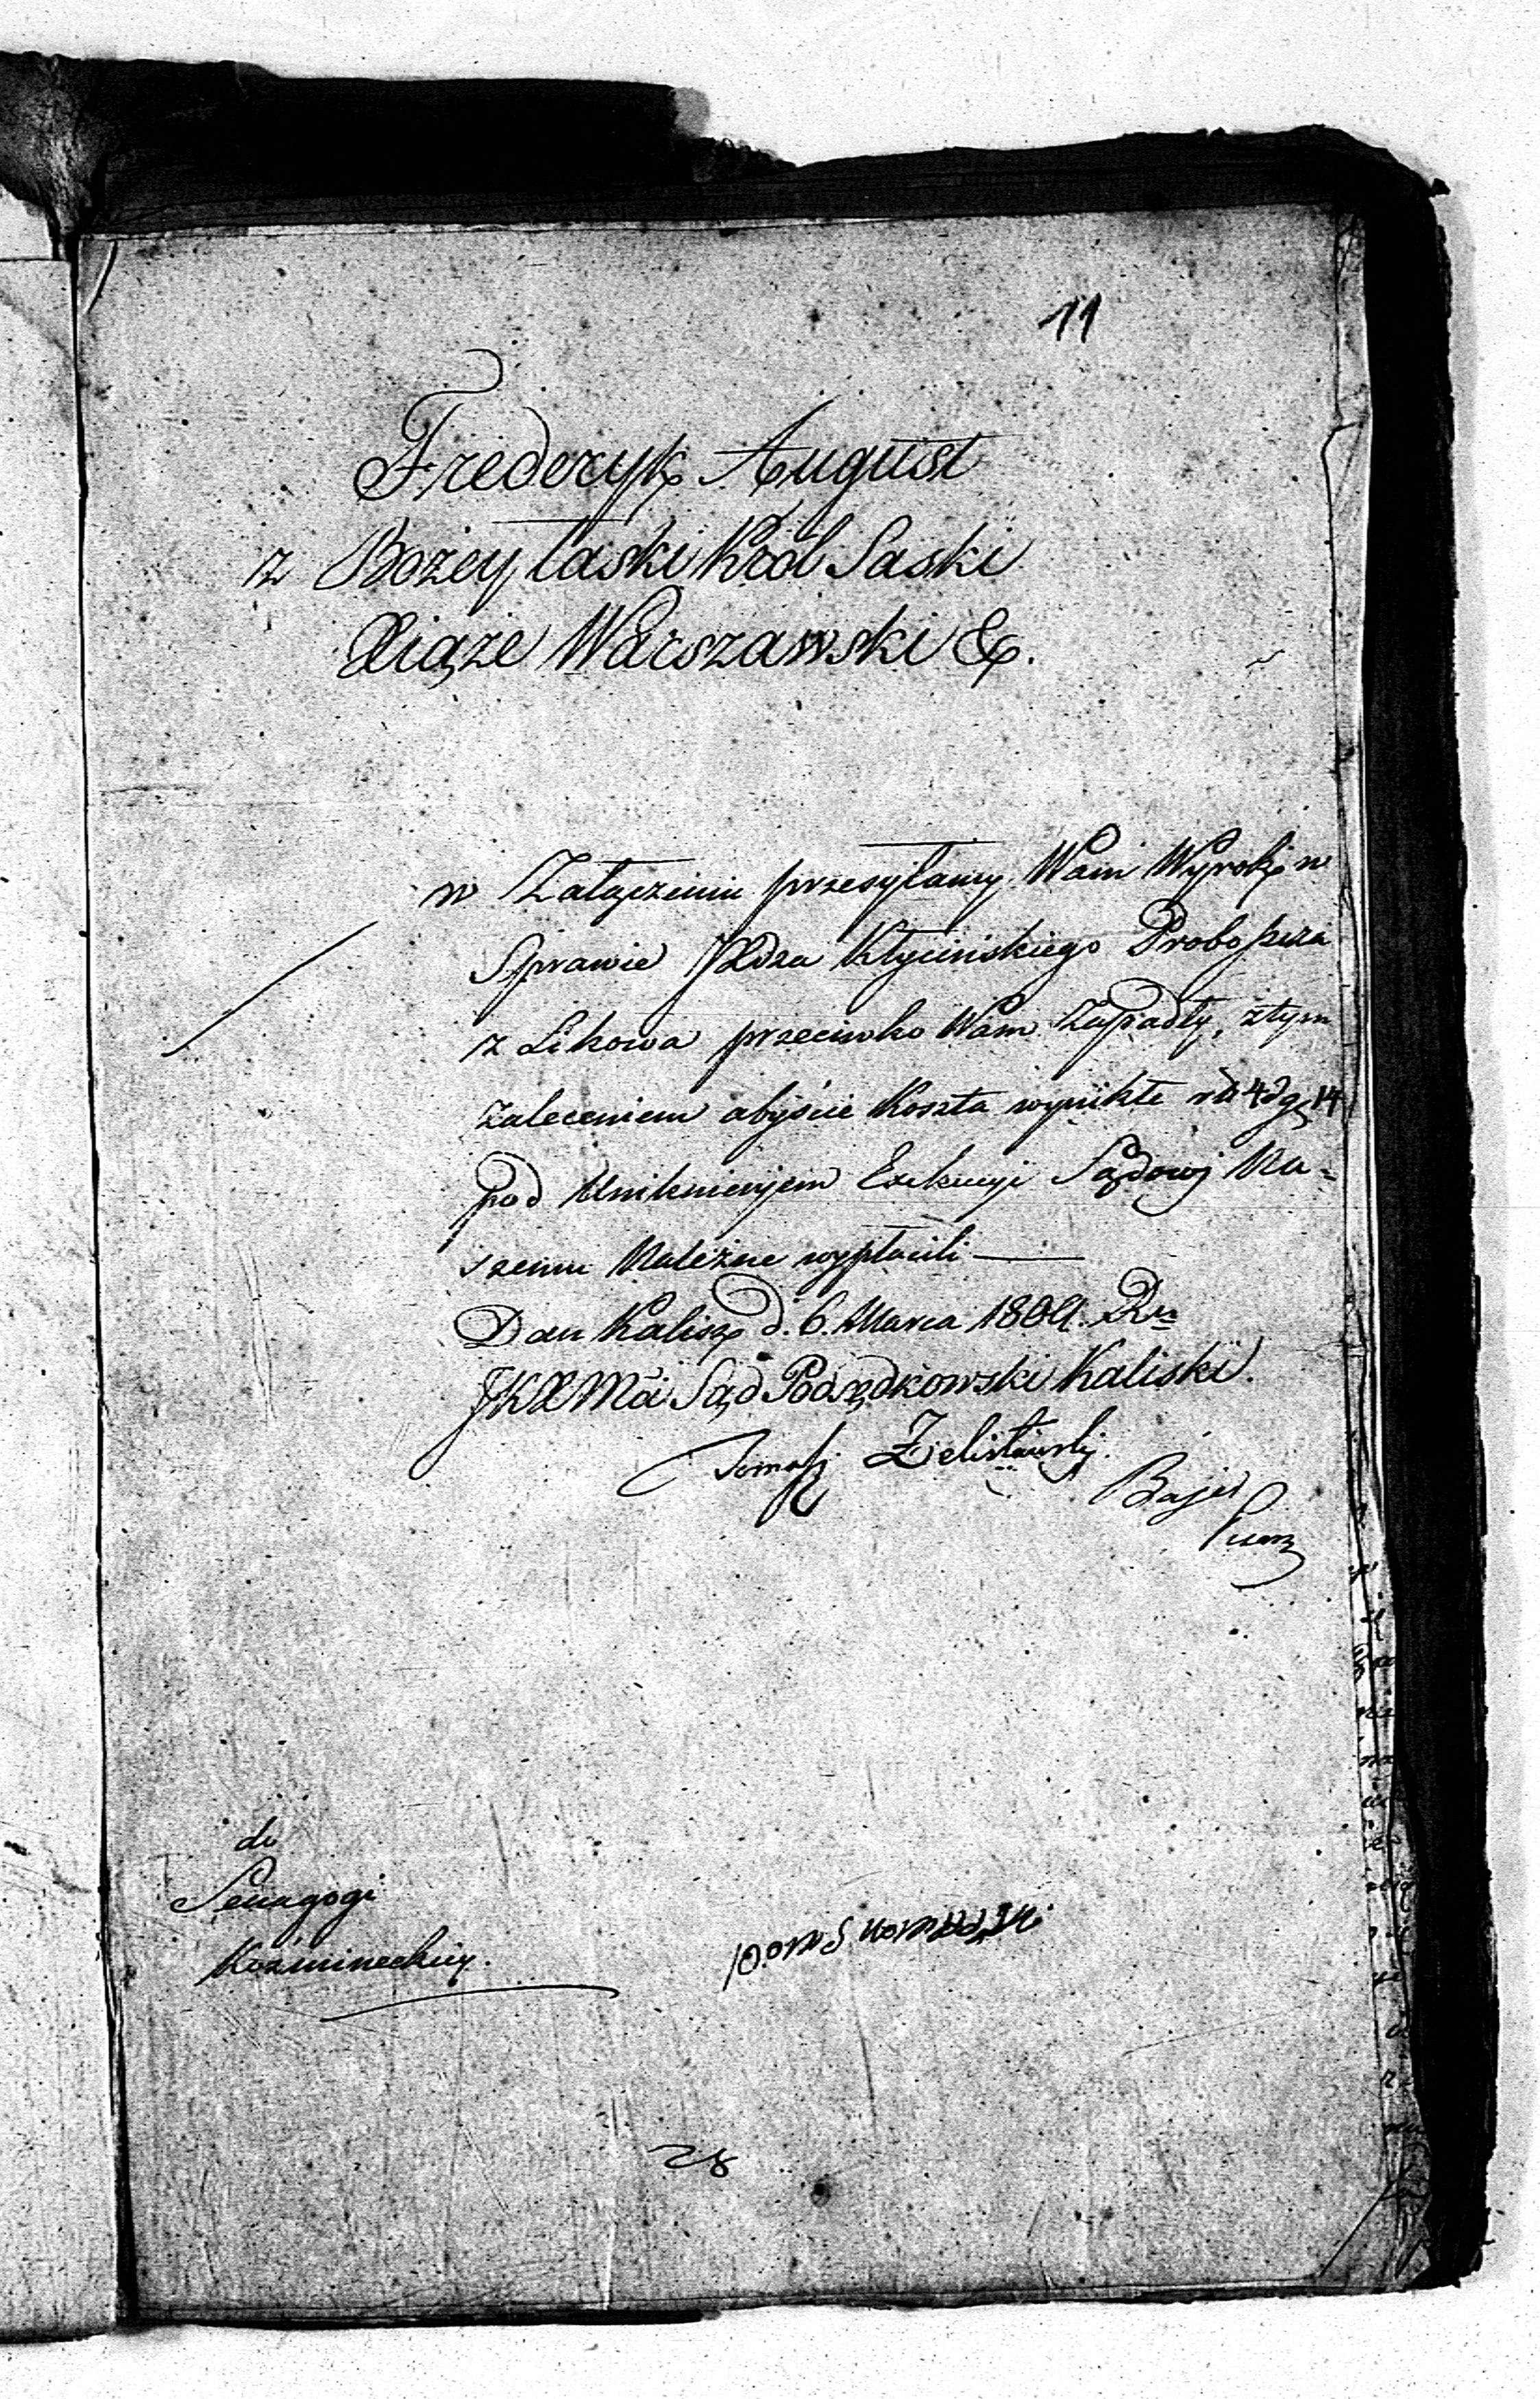 11
Frederyk August
z Bożey łaski Król Saski
Xiąże Warszawski &.
w Załączeniu przesyłamy Wam Wyrok w
Sprawie JXdza Kłycińskiego Proboszcza
z Likowa przeciwko Wam Zapadły, z tym
zaleceniem abyście Koszta wynikłe 4 g 14
pod Uniknieniem Exekucyi Sądowej Na=
szemu Należne wypłacili
Dan Kalisz d. 6. Marca 1809. Ru
JKXMci Sąd Podsędkowski Kaliski.
Tomasz Zelisławski
Pisarz
do
Senagogi
Koźmineckiey.
28